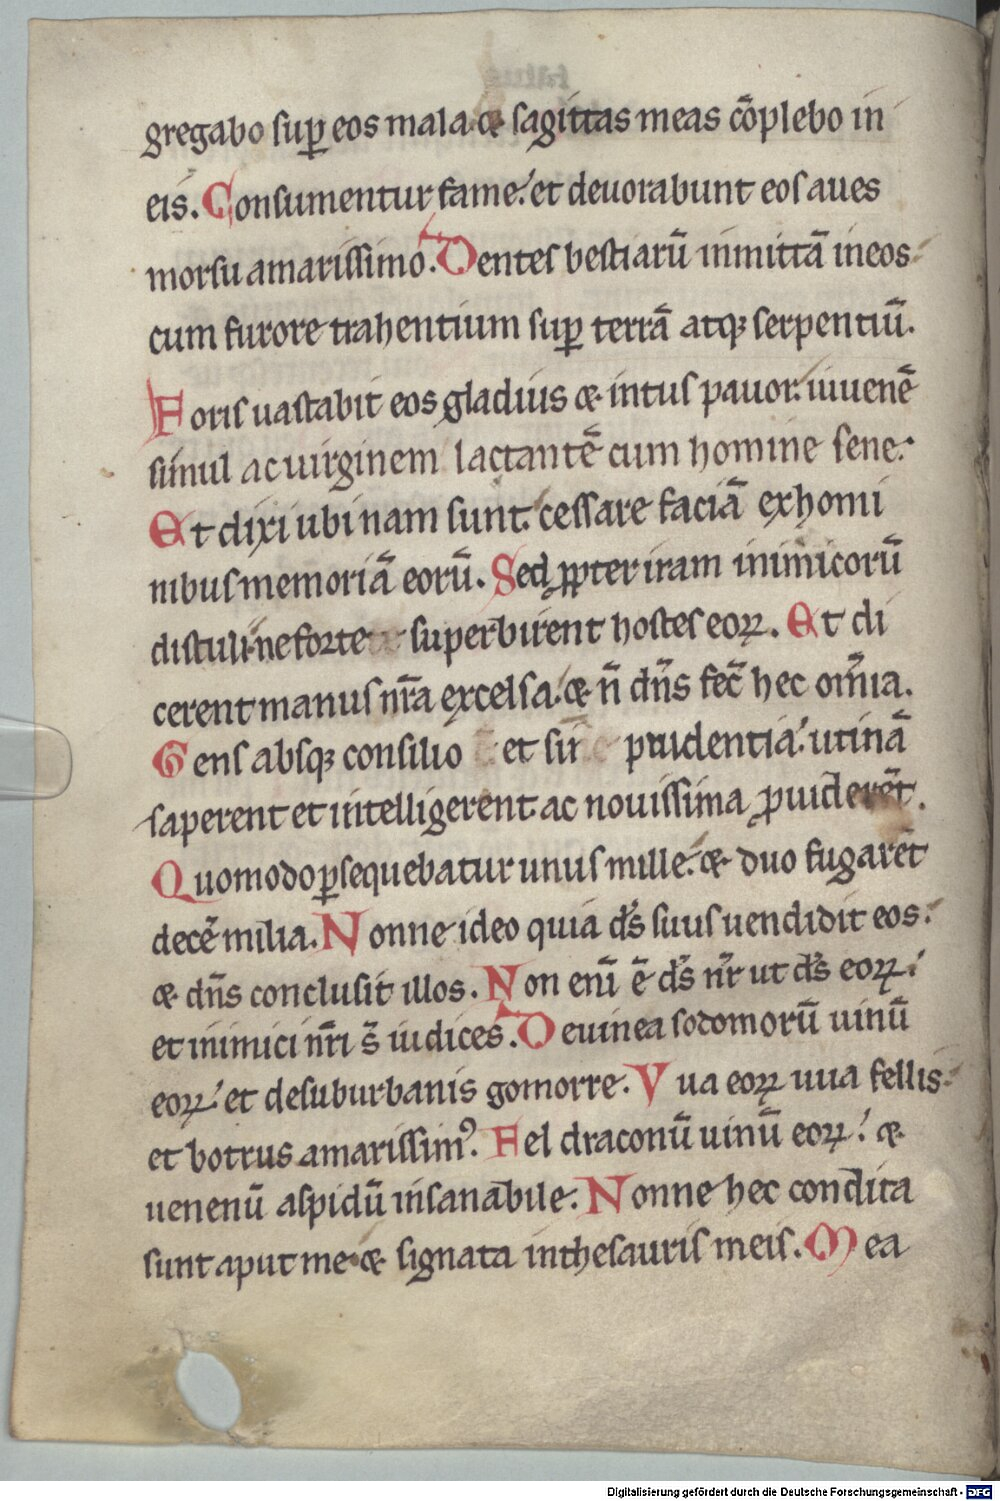 gregabo sup̱ eos mala & sagittas meas cōplebo in
eis. Consumentur fame. et deuorabunt eos aues
morsu amarissimo. Dentes bestiarū inmittā in eos
cum furore trahentium sup̱ terrā atq; serpentiū.
Foris uastabit eos gladius & intus pauor. iuuenē
simul ac uirginem lactantē cum homine sene.
Et dixi ubi nam sunt. cessare faciā ex homi
nibus memoriā eorū. Sed ꝓpter iram inimicorū
distuli. ne forte superbirent hostes eoꝝ. Et di
cerent manus nr̄a excelsa. & n̄ dn̄s fec̄ hec om̄ia.
Gens absq; consilio et sine prudentia. utinā
saperent et intelligerent ac nouissima ꝓuiderēt.
Quomodo ꝑsequebatur unus mille. & duo fugarēt
decē milia. Nonne ideo quia ds̄ suus uendidit eos.
& dn̄s conclusit illos. Non enī ē ds̄ nr̄ ut ds̄ eoꝝ.
et inimici nr̄i s̄ iudices. De uinea sodomorū uinū
eoꝝ. et de suburbanis gomorre. Vua eoꝝ uua fellis
et botrus amarissimꝰ. Fel draconū uinū eoꝝ. &
uenenū aspidū insanabile. Nonne hec condita
sunt aput me & signata in thesauris meis. Mea
Digitalisierung gefördert durch die Deutsche Forschungsgemeinschaft - DFG